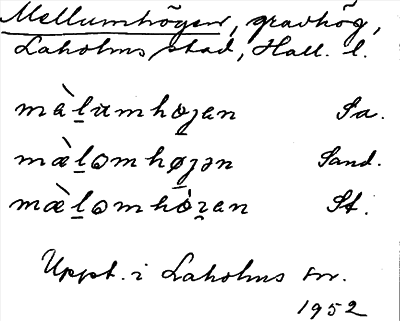 Mellumhögen, gravhög,
Laholms stad, Hall. l.
mæ̀l̲umhøʒen Sa.
mæ̀l̲ɷmhø̲ʒən Sand.
mæ̀l̲ɷmhò̲ʒen St.
Uppt. i Laholms sn.
1952